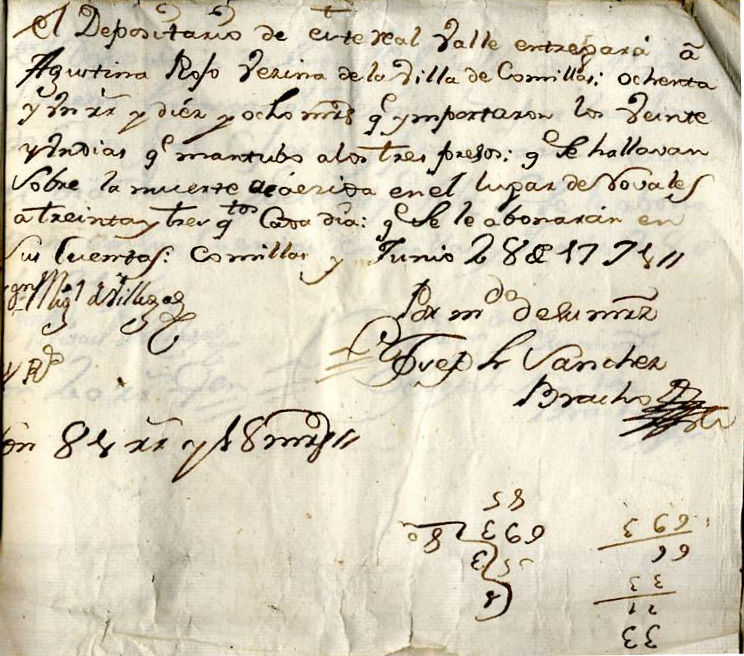 El Depositario de este real Valle entregará â
Agustina Roso Vezina de la Villa de Comillas: ochenta
y un rr y diéz y ocho mrs q ymportaron los veinte
y un dias q mantubo a los tres presos: q Se hallavan
Sobre la muerte acaezida en el lugar de Novales
a treinta y tres qtos Cada día: q Se le abonarán en
Sus Cuentas: Comillas y Junio 28 de 17
Por mdo de su mrz
Joseph Sanchez
Bracho
Son 81 rr y 18 mrs
693
66
33
21
33